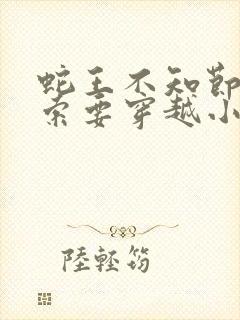 蛇王不知節
索要穿越小
陸輕筠